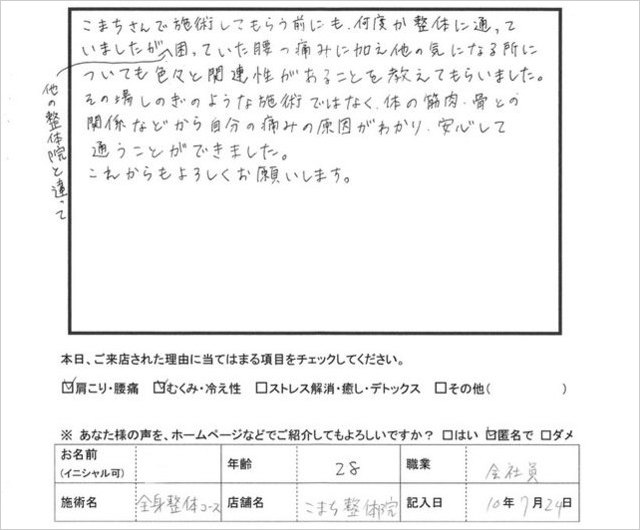 こまちさんで施術してもらう前にも、何度か整体に通って
いましたが、困っていた腰の痛みに加え他の気になる所に
ついても色々と関連性があることを教えてもらいました。
その場しのぎのような施術ではなく、体の筋肉・骨との
関係などから自分の痛みの原因がわかり、安心して
通うことができました。
これからもよろしくお願いします。
他の整体院と違って
本日、ご来店された理由に当てはまる項目をチェックしてください。
☑肩こり・腰痛 ☑むくみ・冷え性 ☐ストレス解消・癒し・デトックス ☐その他( )
※ あなた様の声を、ホームページなどでご紹介してもよろしいですか? ☐はい ☑匿名で ☐ダメ
お名前 年齢 28 職業 会社員
(イニシャル可)
施術名 全身整体コース 店舗名 こまち整体院 記入日 10年7月24日